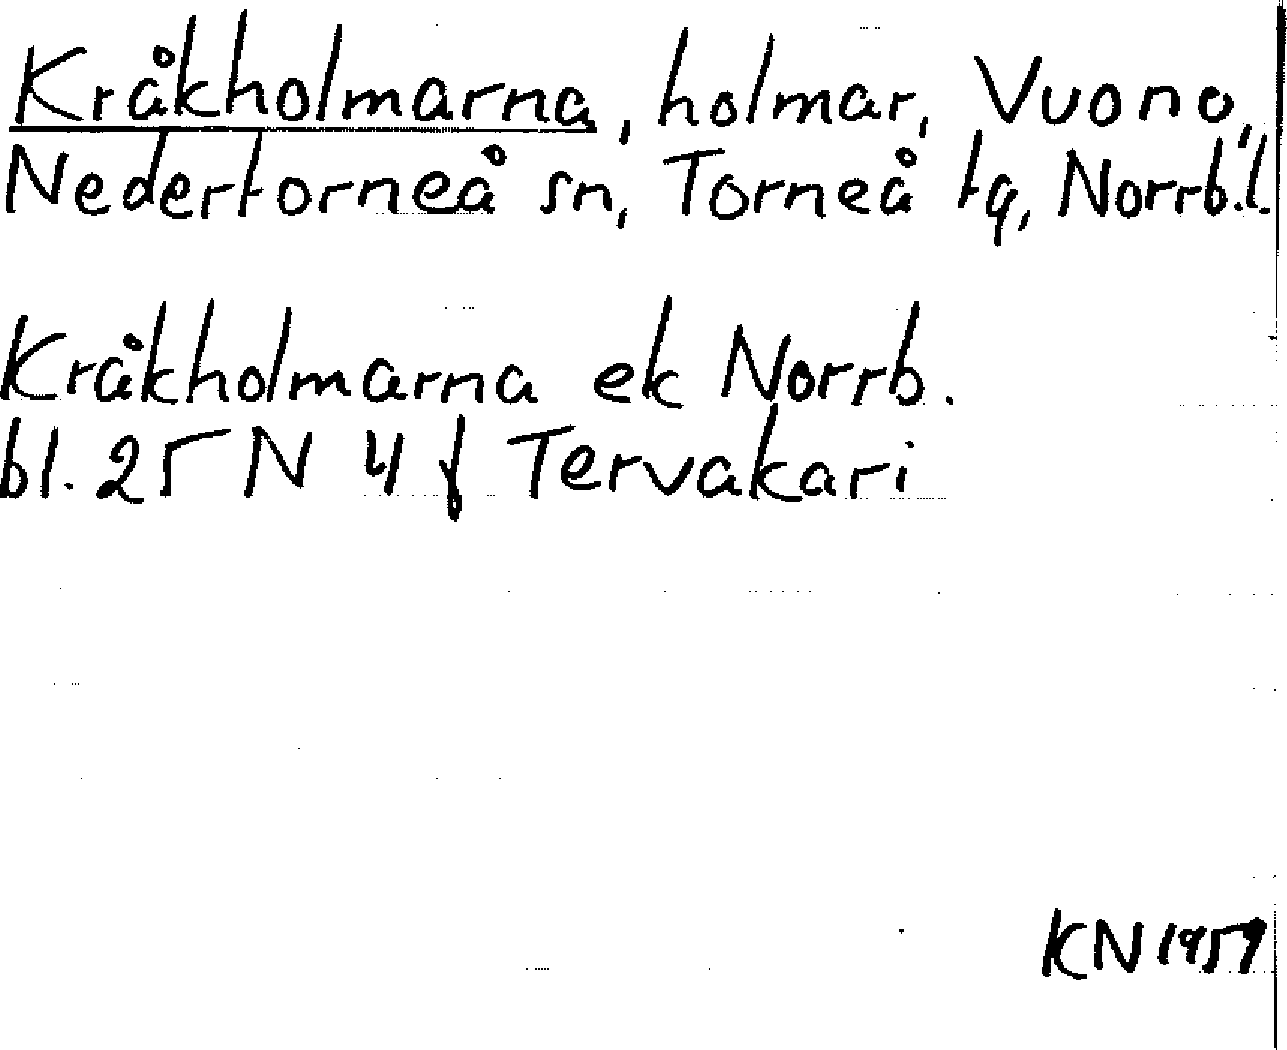 Kråkholmarna, holmar, Vuono,
Nedertorneå sn, Torneå tg, Norrb.l.
Kråkholmarna ek Norrb.
bl. 25 N 4 f Tervakari
KN 1959